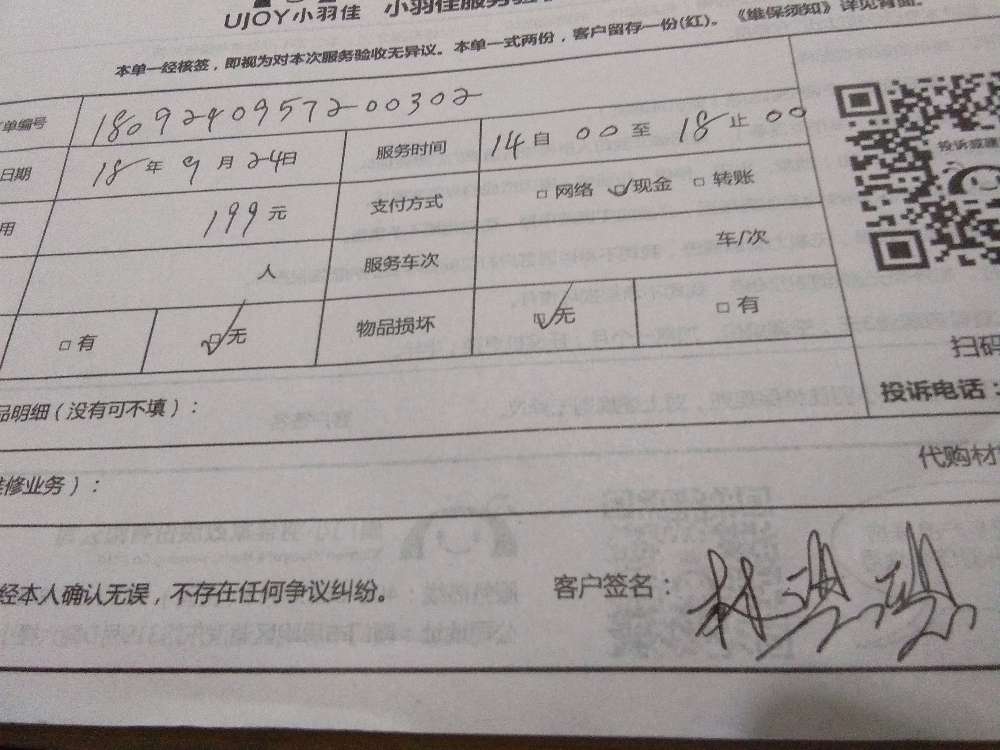 UJOY小羽佳 小羽佳服务验
本单一经核签，即视为对本次服务验收无异议。本单一式两份，客户留存一份(红)。《维保须知》详见背面。
单编号 1809240957200302
日期 18年9月24日 服务时间 14自00至18止00
用 199元 支付方式 □网络 ☑现金 □转账
人 服务车次 车/次
□有 ☑无 物品损坏 ☑无 □有
投诉受理
扫码
投诉电话：
品明细（没有可不填）：
代购材
维修业务）：
经本人确认无误，不存在任何争议纠纷。 客户签名：